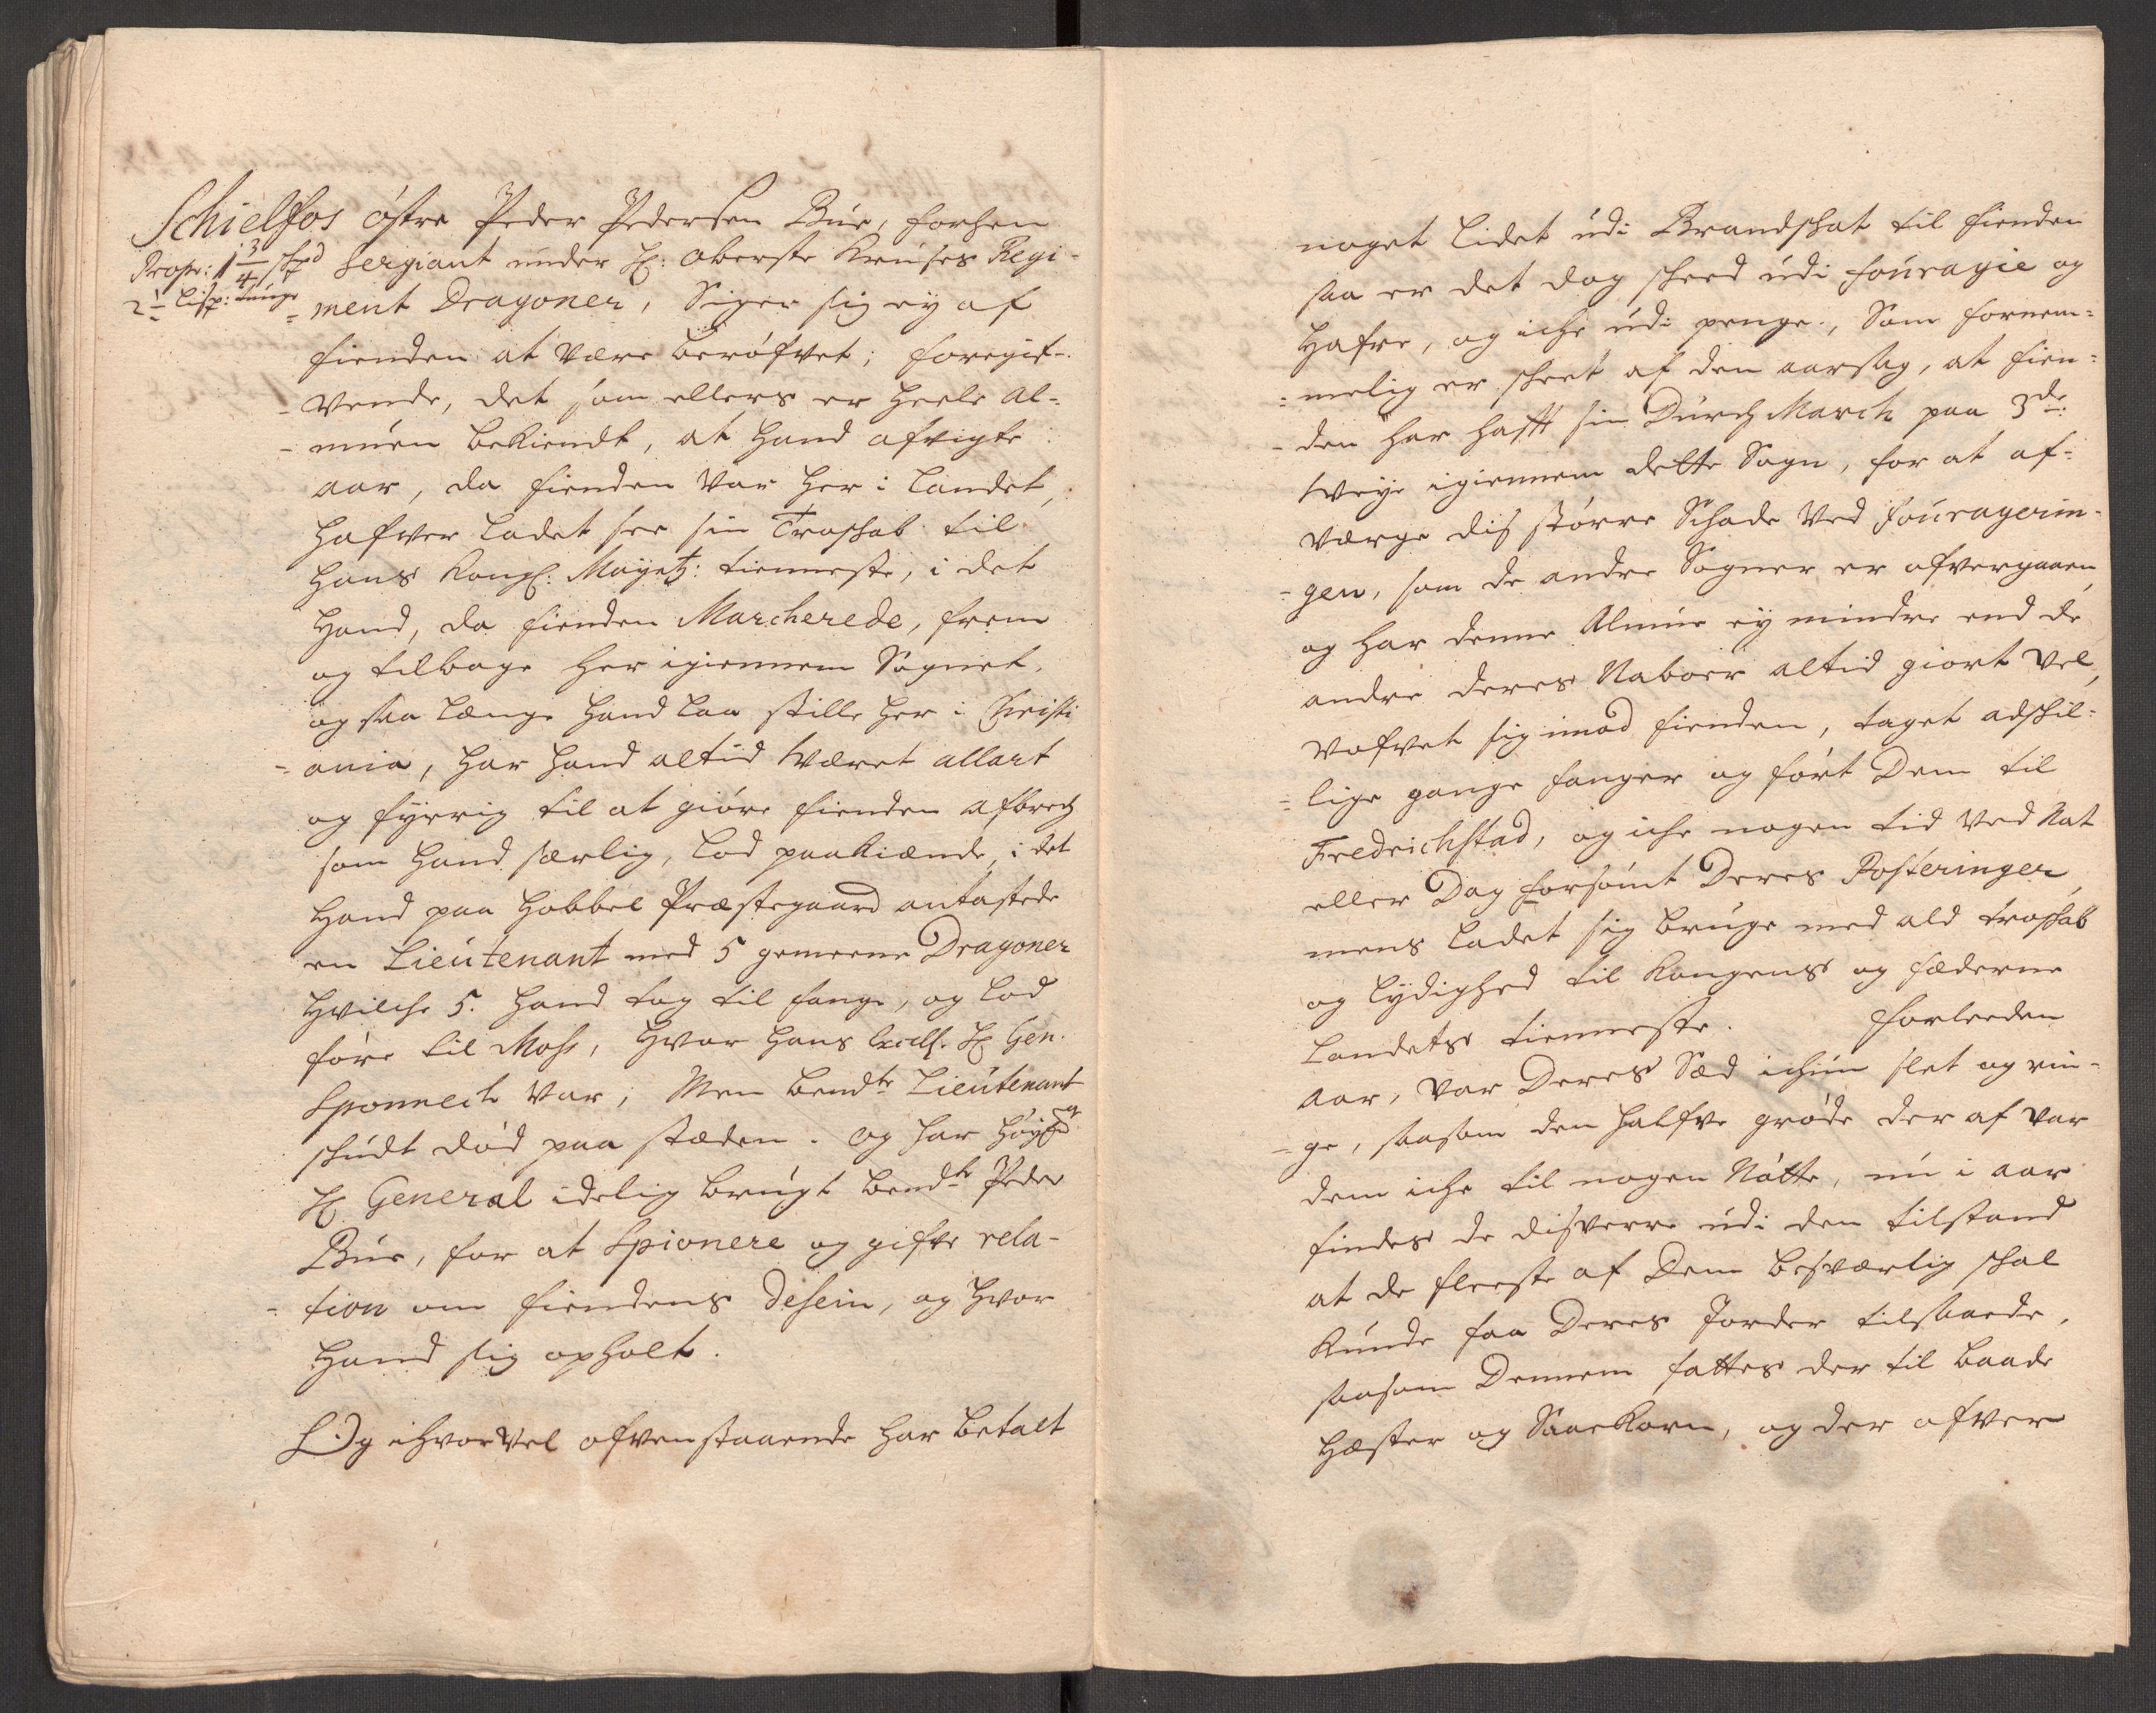 Schielfos östre Peder Pedersen Bue, forhen
Propr: 1 3/4 skpd Sergiant under H: Oberste Kruses Regi-
2 1/2 lisp: tunge - ment Dragoner, Siger sig ey af
fienden at være beröfvet; foregif-
- vende, det som ellers er heele Al-
- muen bekiendt, at hand afvigte
aar, da fienden var her i Landet,
hafver ladet see sin Troskab til
Hans Kongl: Mayetz: tienneste, i det
Hand, da fienden Marcherede, frem
og tilbage her igiennem Sognet,
og saa længe hand laa stille her i Christi
- ania, har hand altid været allart
og fyrrig til at giöre fienden afbrech
som hand særlig, lod paakiænde, i det
Hand paa Hobbel Præstegaard antastede
en Lieutenant med 5 gemeene Dragoner
Hvilche 5. hand tog til fange, og lod
före til Moss, hvor hans Excell. H Gen.
Sponnech var; Men bemdte Lieutenant
skudt död paa stæden. og har höybr
H General idelig brugt bemdte Peder
Bue, for at Spionere og gifve rela-
- tion om fiendens Desein, og hvor
Hand sig opholt.
Og ihvorvel ofvenstaaende har betalt
noget lidet udi Brandskat til fienden
saa er det dog skeed udi fouragie og
Hafre, og iche udi penge, Som fornem-
- melig er skeet af den aarsag, at fien-
- den har hafft sin Durch March paa 3de:
tveye igiennem dette Sogn, for at af-
værge dis större Schade ved fouragerin-
- gen, som de andre Sogner er ofvergaaen,
og har denne Almue ey mindre end de
andre deres Naboer altid giort vel,
vofvet sig imod fienden, taget adskil-
- lige gange fanger og fört Dem til
Fredrichstad, og iche nogen tid ved Nat
eller Dag forsömt Deres Posteringer,
mens ladet sig bruge med ald troskab
og lydighed til Kongens og fæderne
Landets tienneste. forleeden
Aar, var Deres Sæd ichun slet og rin-
- ge, saasom den halfve gröde der af var
dem iche til nogen Nötte, nu i aar
findes de disverre udi den tilstand
at de fleeste af Dem besværlig skal
Kunde faa Deres Jorder tilsaaede,
saasom Dennem fattes der til baade
Hæster og Saaekorn, og der ofver